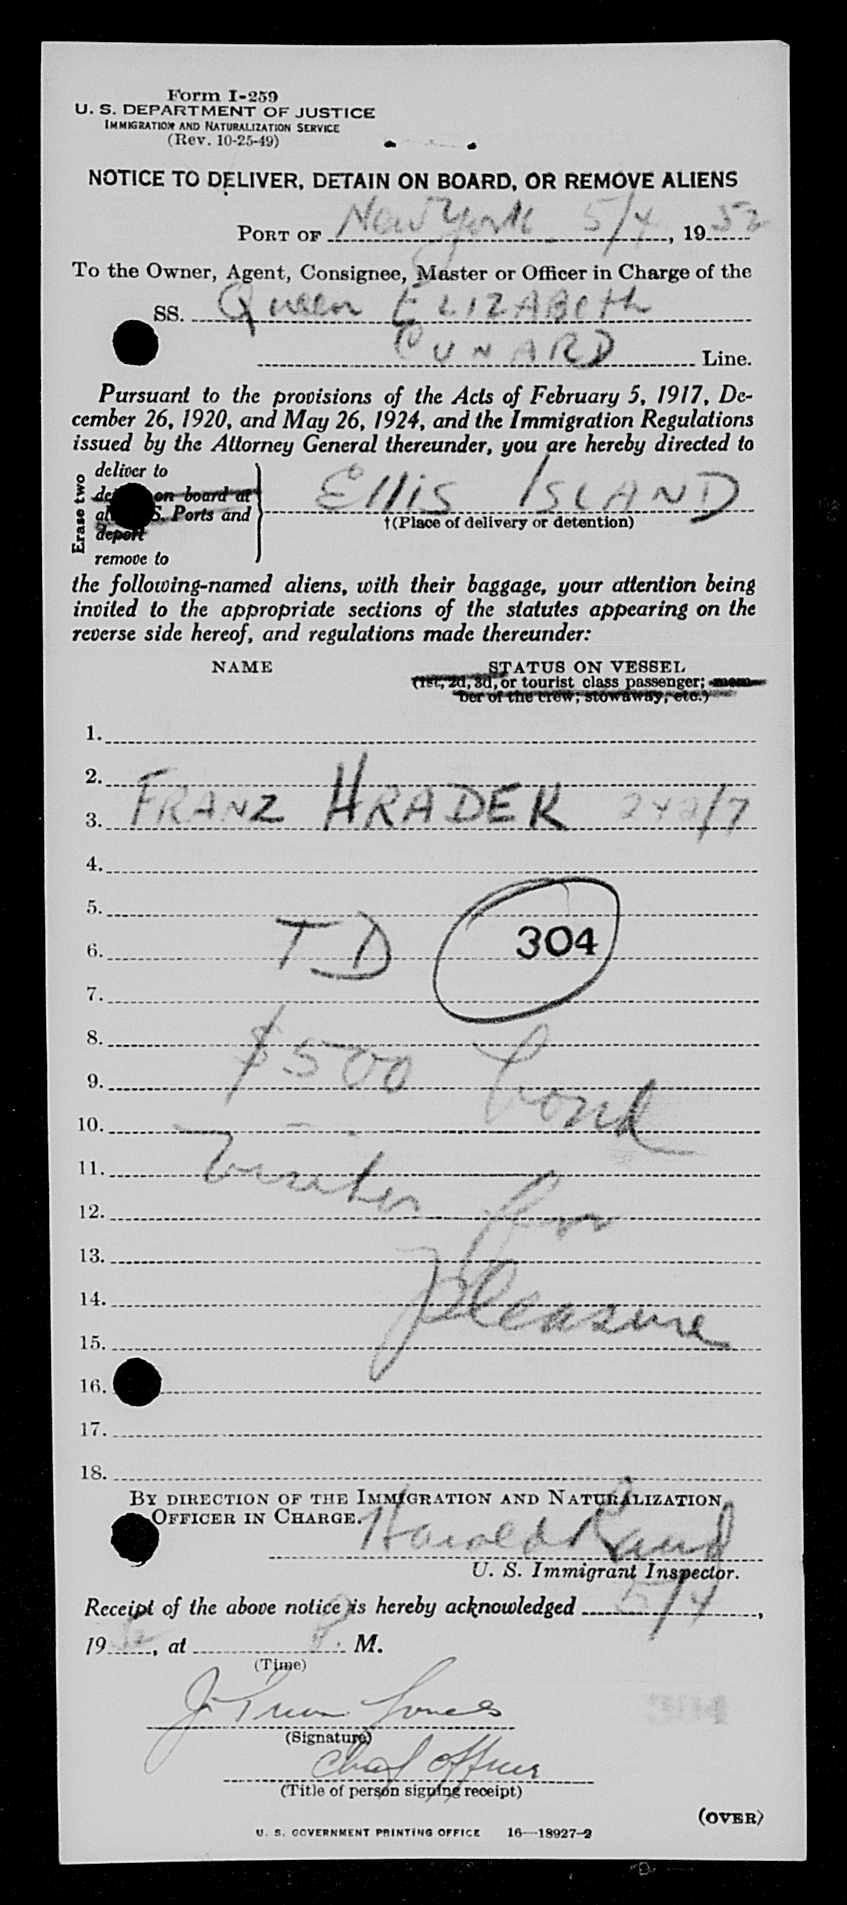 Form I-259
U. S. DEPARTMENT OF JUSTICE
IMMIGRATION AND NATURALIZATION SERVICE
(Rev. 10-25-49)
NOTICE TO DELIVER, DETAIN ON BOARD, OR REMOVE ALIENS
PORT OF New York 5/4, 1952
To the Owner, Agent, Consignee, Master or Officer in Charge of the
SS. Queen ELIZABETH
CUNARD Line.
Pursuant to the provisions of the Acts of February 5, 1917, De-
cember 26, 1920, and May 26, 1924, and the Immigration Regulations
issued by the Attorney General thereunder, you are hereby directed to
Erase two
deliver to
on board at
S. Ports and
deport
remove to
Ellis ISLAND
†(Place of delivery or detention)
the following-named aliens, with their baggage, your attention being
invited to the appropriate sections of the statutes appearing on the
reverse side hereof, and regulations made thereunder:
NAME STATUS ON VESSEL
(1st, 2d, 3d, or tourist class passenger; mem-
ber of the crew; stowaway, etc.)
1.
2.
3. FRANZ HRADEK 242/7
4.
5.
6. TD 304
7.
8.
9. $500 bond
10.
11. Visitor
12. for
13.
14. pleasure
15.
16.
17.
18.
BY DIRECTION OF THE IMMIGRATION AND NATURALIZATION
OFFICER IN CHARGE.
Harold
U. S. Immigrant Inspector.
Receipt of the above notice is hereby acknowledged 5/4,
1952, at P. M.
(Time)
J. Jones
(Signature)
Chief Officer
(Title of person signing receipt)
(OVER)
U. S. GOVERNMENT PRINTING OFFICE 16—18927-2